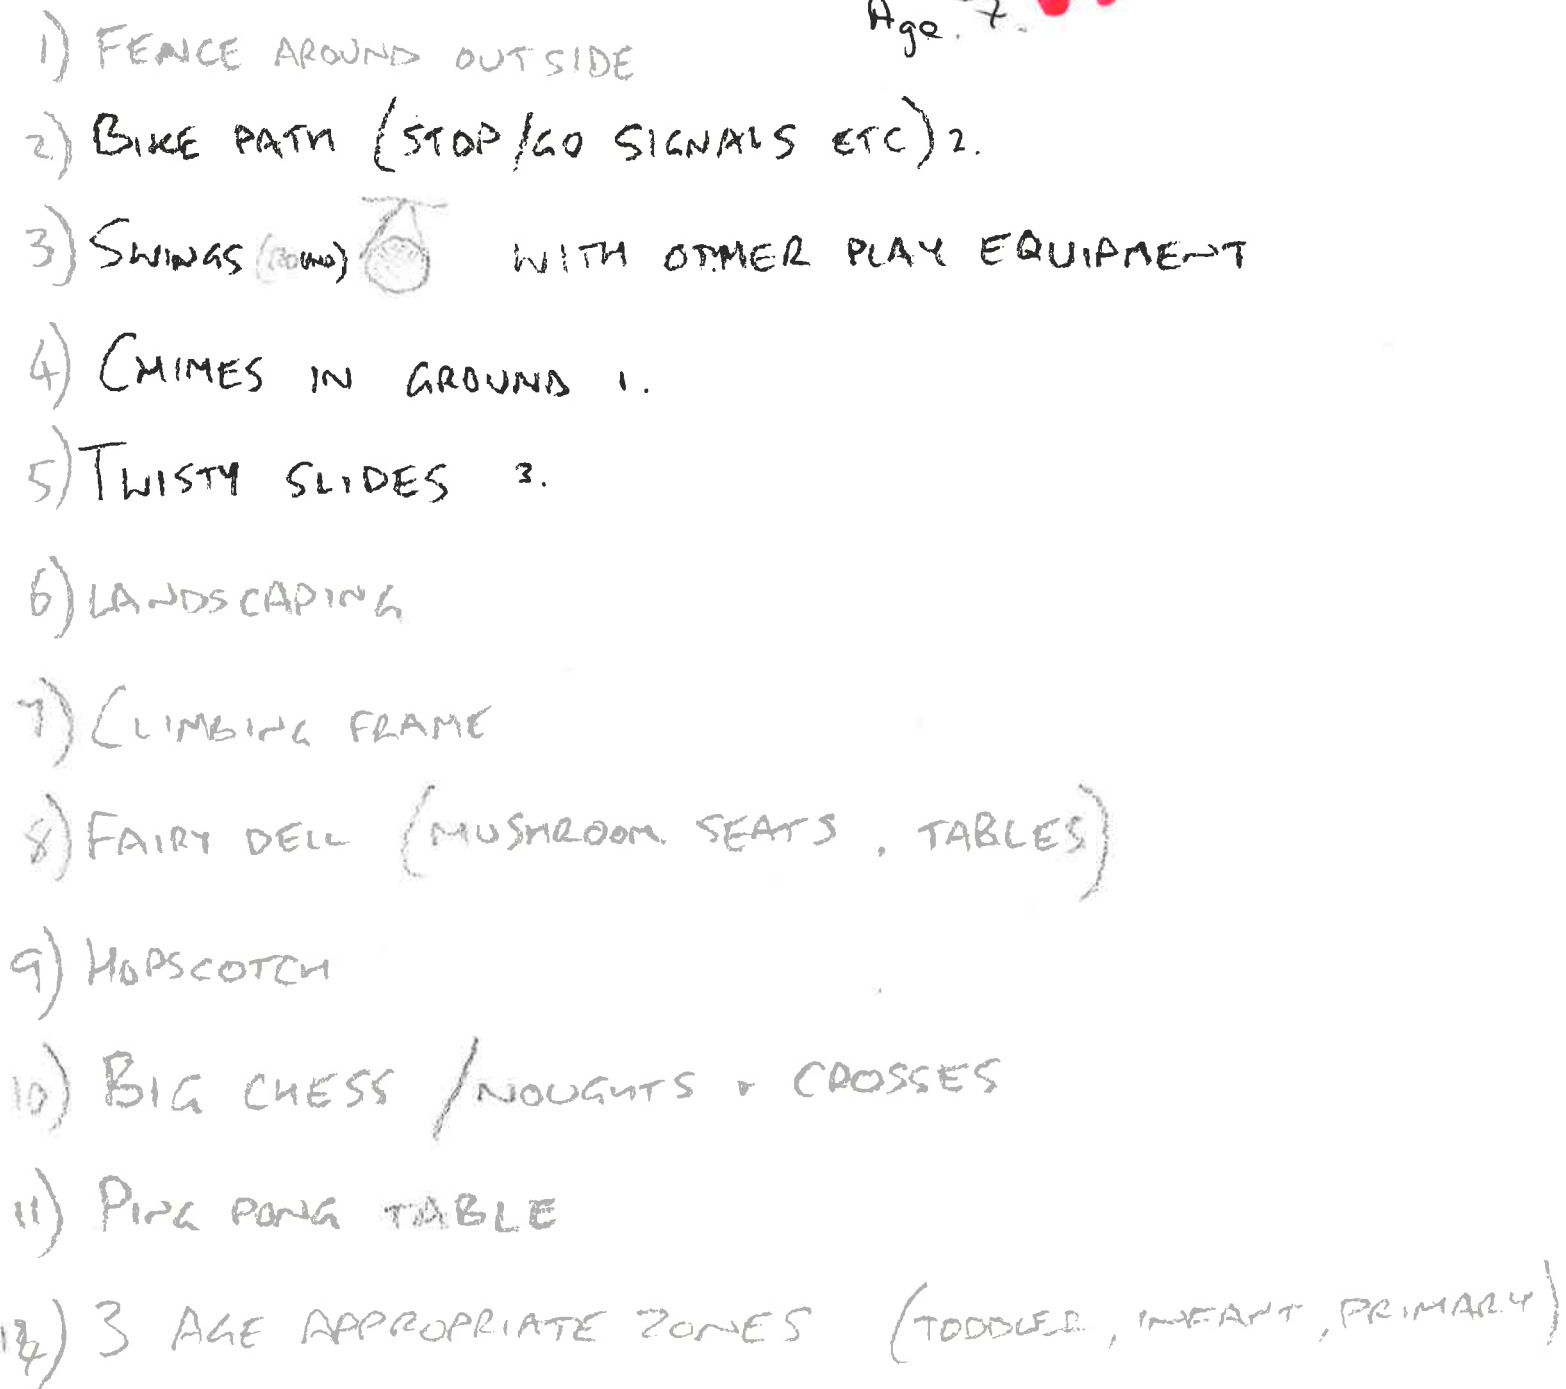 Age. 7.
1) FENCE AROUND OUTSIDE
2) BIKE PATH (STOP/GO SIGNALS ETC) 2.
3) SWINGS (ROUND) WITH OTHER PLAY EQUIPMENT
4) CHIMES IN GROUND 1.
5) TWISTY SLIDES 3.
6) LANDSCAPING
7) CLIMBING FRAME
8) FAIRY DELL (MUSHROOM SEATS, TABLES)
9) HOPSCOTCH
10) BIG CHESS / NOUGHTS + CROSSES
11) PING PONG TABLE
12) 3 AGE APPROPRIATE ZONES (TODDLER, INFANT, PRIMARY)